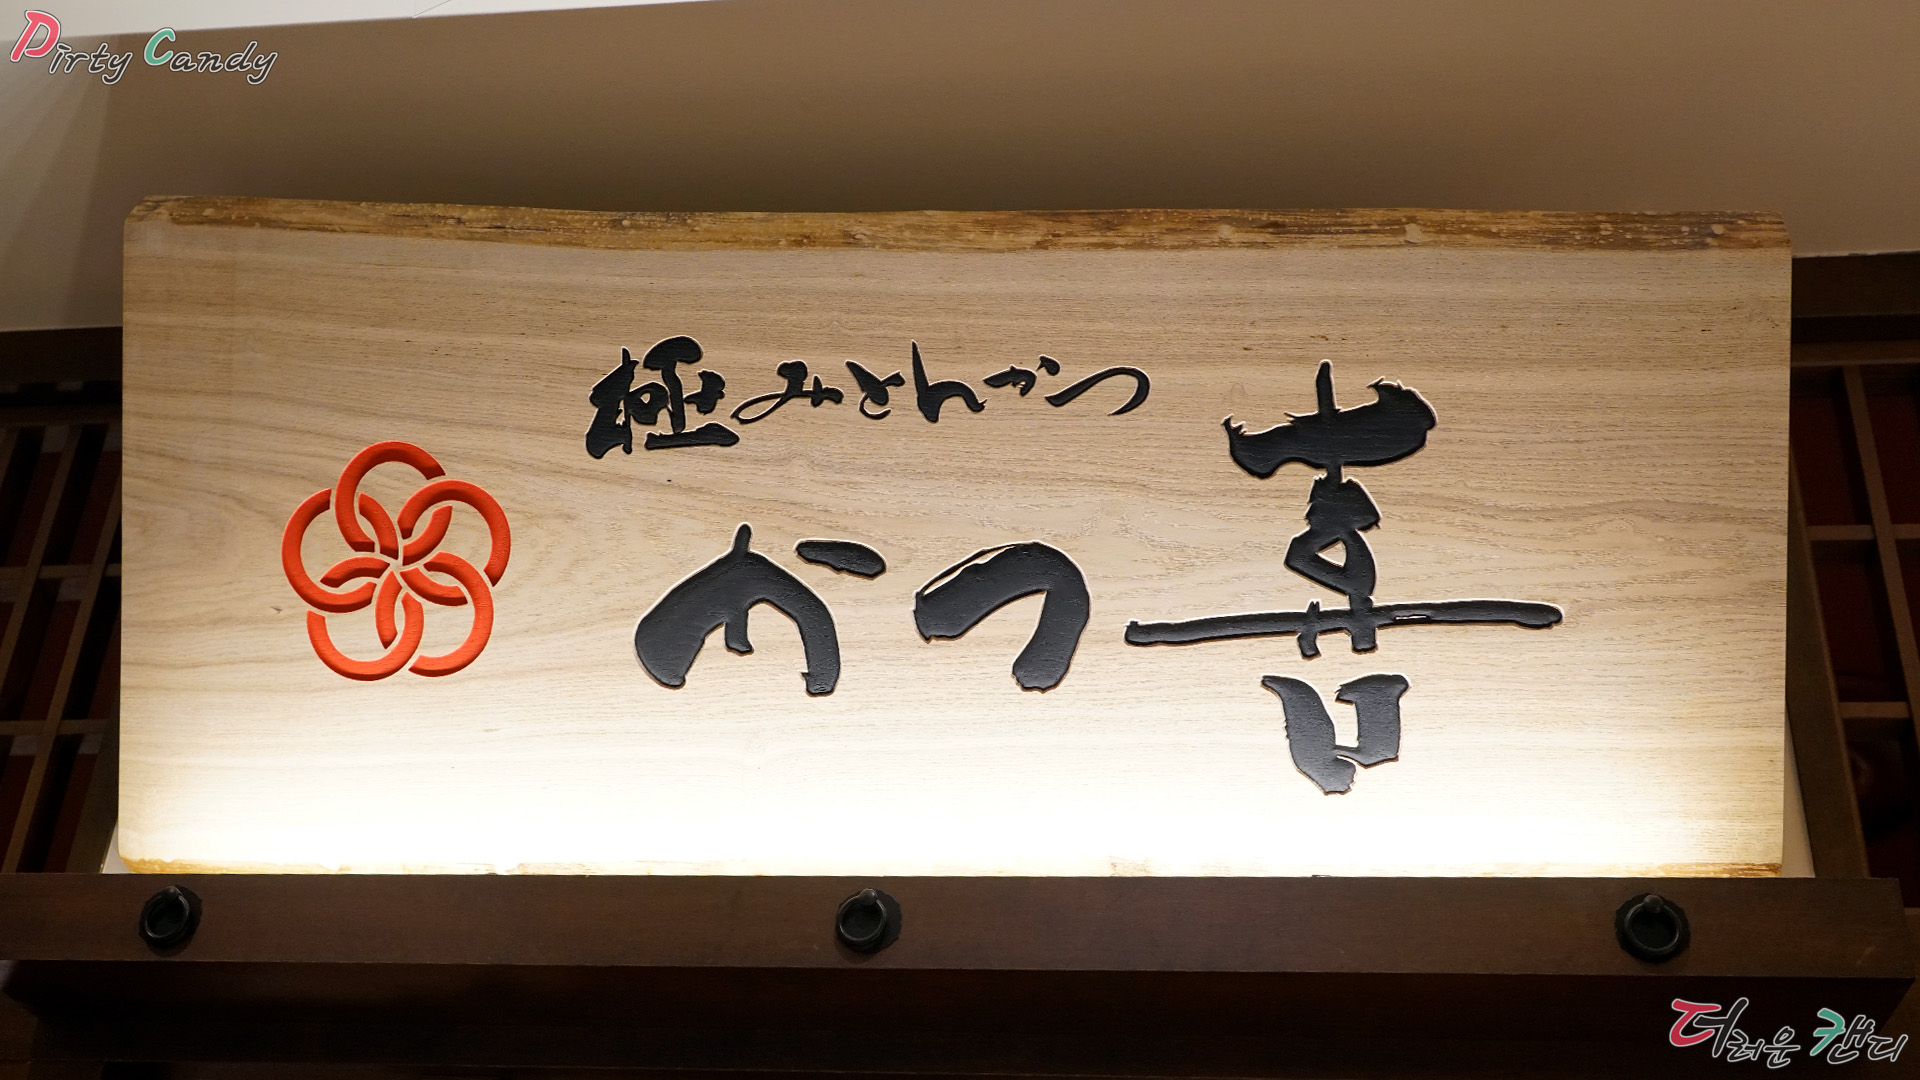 Dirty Candy
極みとんかつ
かつ喜
더러운 캔디